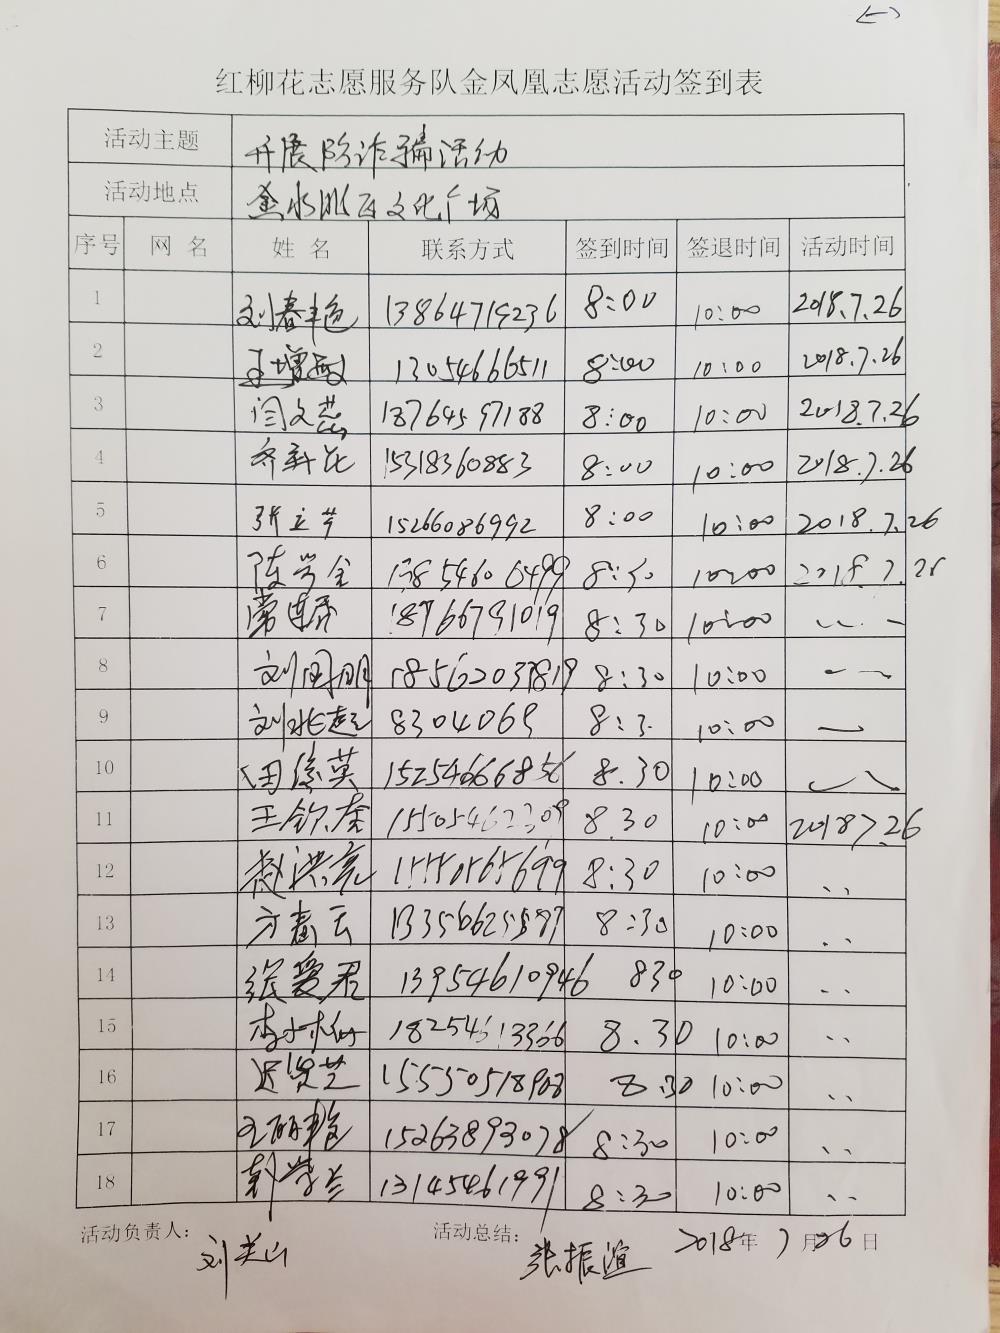 (一)
红柳花志愿服务队金凤凰志愿活动签到表
活动主题 开展防诈骗活动
活动地点 文化广场
序号 网名 姓名 联系方式 签到时间 签退时间 活动时间
1 刘春艳 13864719236 8:00 10:00 2018.7.26
2 王增敏 13054666511 8:00 10:00 2018.7.26
3 闫文燕 13764597188 8:00 10:00 2018.7.26
4 齐新花 15318360883 8:00 10:00 2018.7.26
5 张立芹 15266086992 8:00 10:00 2018.7.26
6 陈学全 13854606499 8:30 10:00 2018.7.26
7 18766791019 8:30 10:00
8 刘国明 18562037819 8:30 10:00
9 刘兆起 8304069 8:3 10:00
10 田俊英 15254666856 8.30 10:00
11 王钦奎 15505462309 8.30 10:00 2018 7.26
12 赵洪亮 8:30 10:00
13 方春云 13356625587 8:30 10:00
14 张爱君 13954610946 830 10:00
15 18254613366 8.30 10:00
16 迟贤芝 15550518908 8.30 10:00
17 王丽艳 15263893078 8:30 10:00
18 郭学兰 13145461991 8:30 10:00
活动负责人: 刘美山 活动总结: 张振谊 2018年7月26日